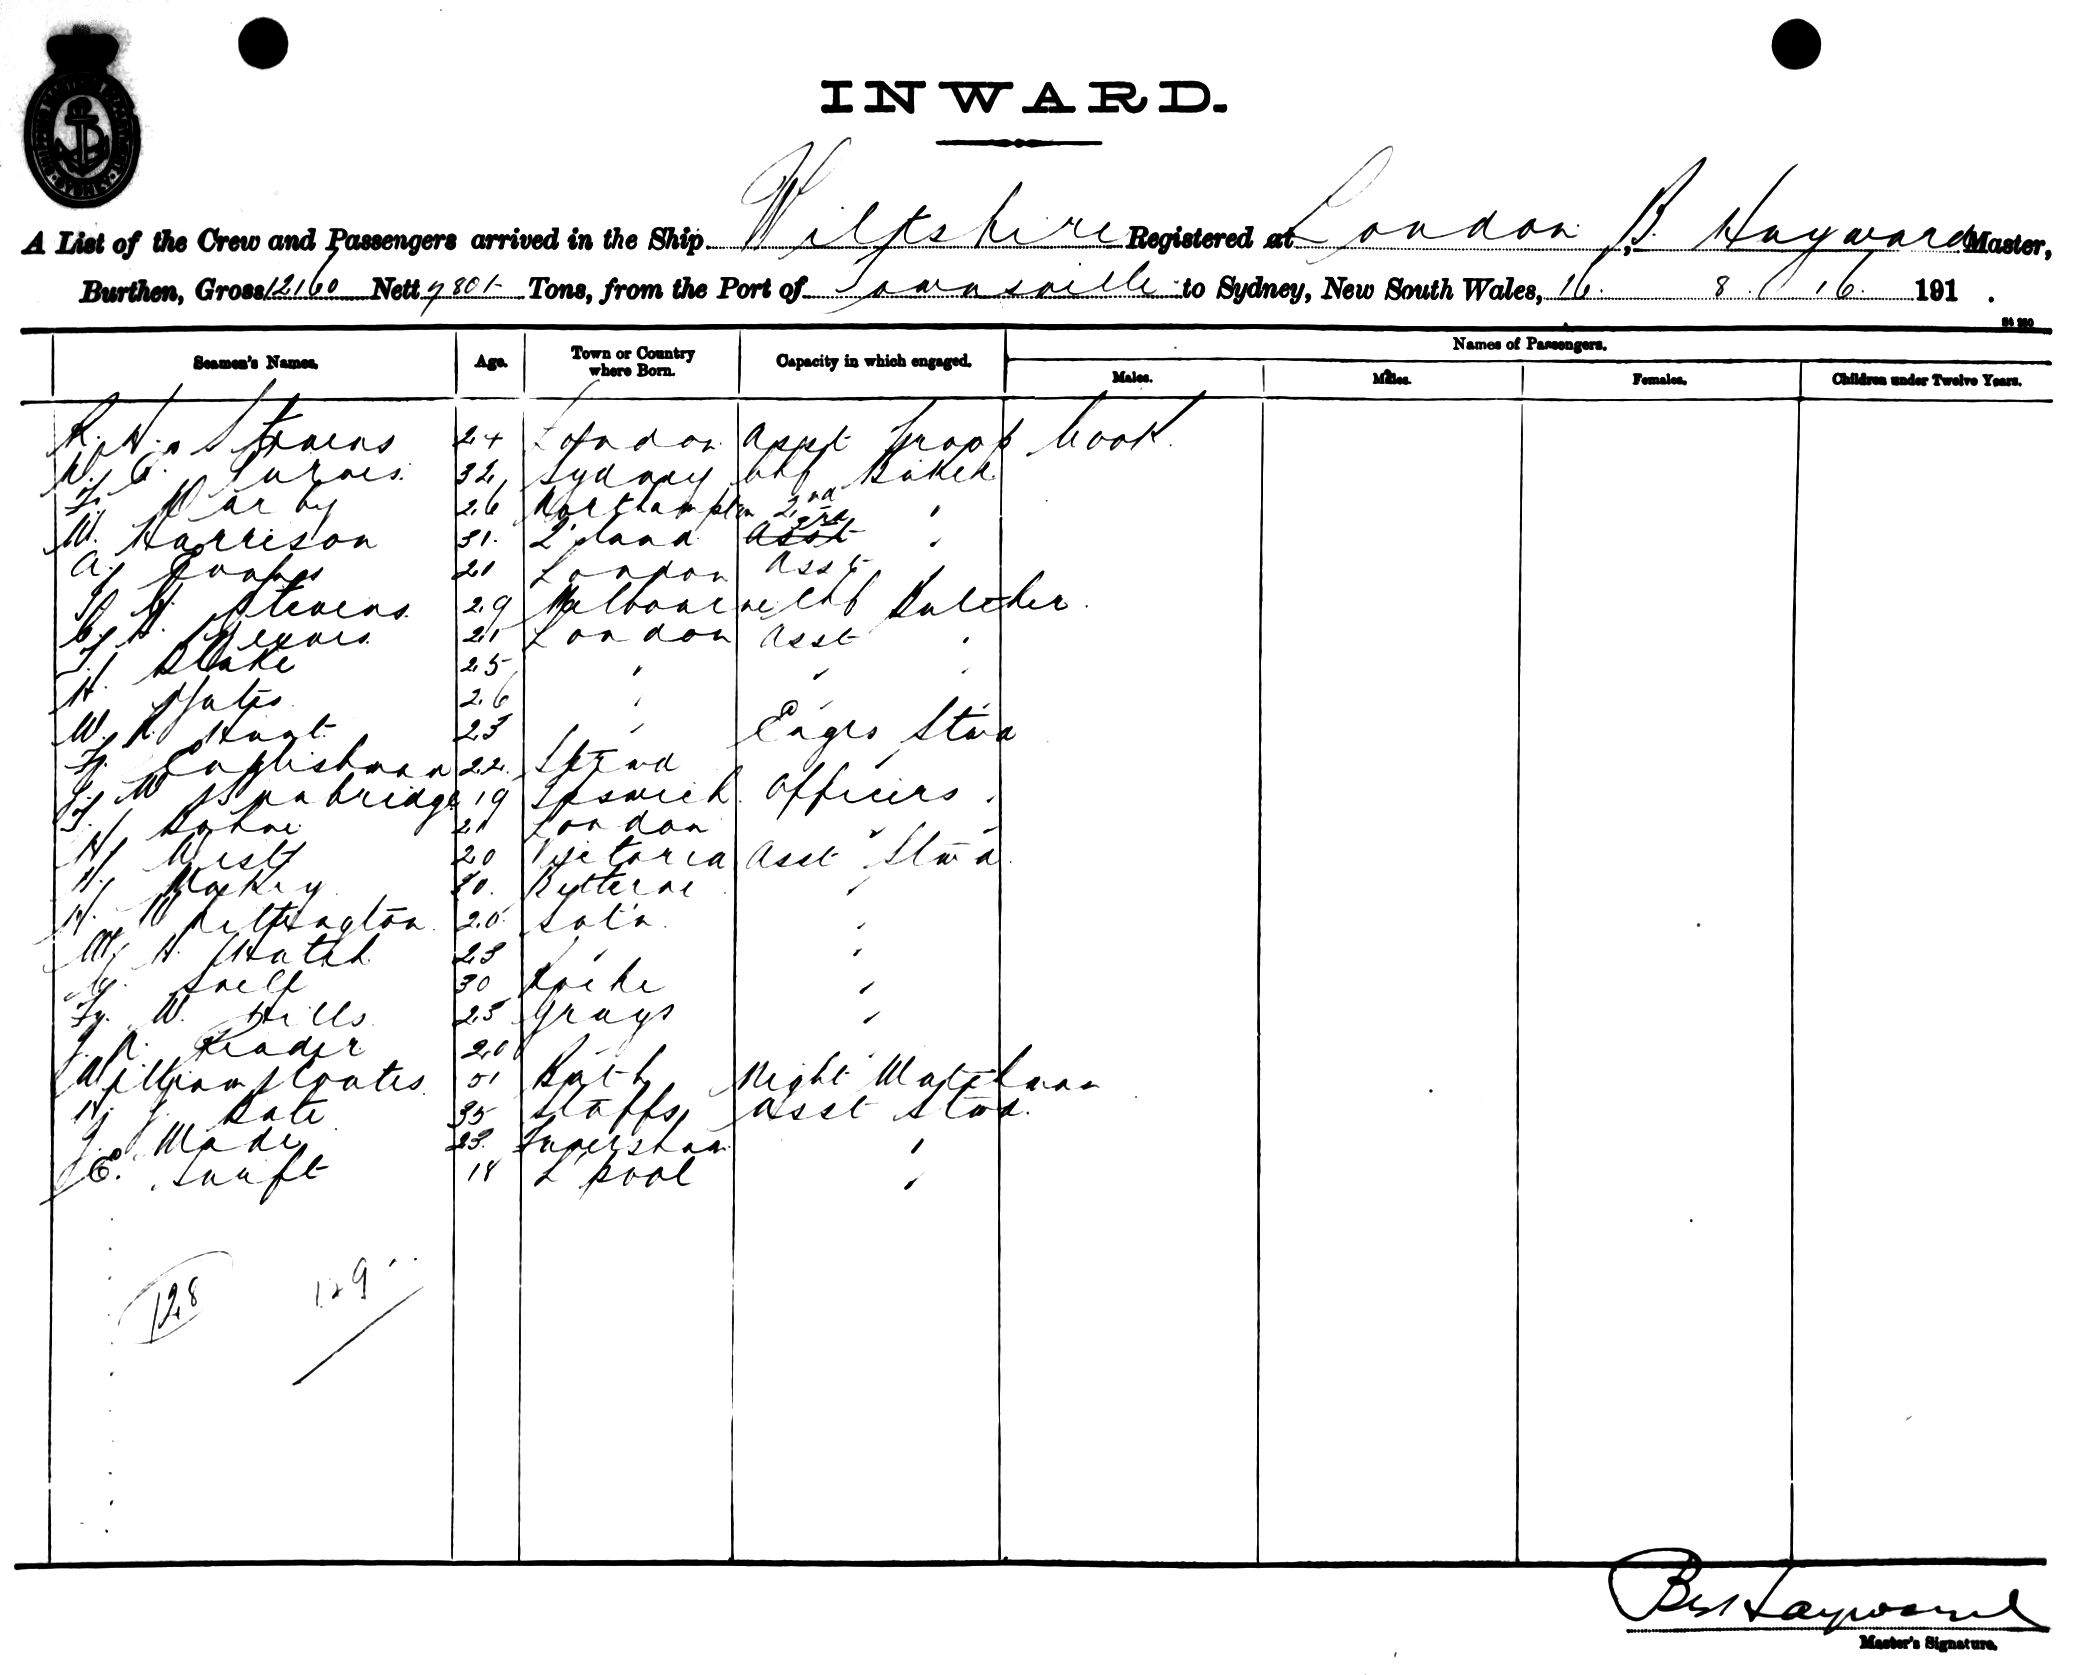 INWARD.
A List of the Crew and Passengers arrived in the Ship Wiltshire Registered at London, B. Hayward Master,
Burthen, Gross 12160 Nett 9801 Tons, from the Port of Townsville to Sydney, New South Wales, 16. 8. 16. 191 .
Names of Passengers.
Seamen's Names. Age. Town or Country where Born. Capacity in which engaged. Males. Males. Females. Children under Twelve Years.
R. H. Stevens 24 London Asst Troop Cook.
32 Sydney Chf Baker
F. Darby 26 Northampton 2nd "
W. Harrison 31. L'land Asst 3rd "
A. Evans 21 London Asst
H. Stevens 29 Melbourne Chf Butcher.
21 London Asst "
F. Blake 25 " " "
H. Yates 26 " "
W. R. Hunt 23 " Engrs Stwd
F. Englishman 22. "
W. Bunbridge 19 Ipswich Officers "
21 London " "
H. West 20 Victoria Asst Stwd.
H. 30. Bitterne "
H. W. Pilkington 20 Sot'n "
H. Hatch 23 " "
Snell 30 "
Fy. W. Hills 23 Grays "
J. R. Reader 20 " "
William Coates 51 Bath Night Watchman
H. J. Bate 35 Staffs Asst Stwd.
J. Wade 23. Faversham "
E. Swift 18 L'pool "
128 129
B Hayward
Master's Signature.